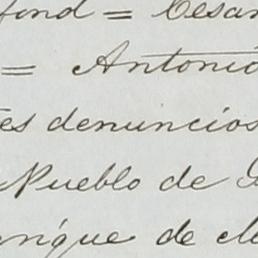 fond = Cesar
= Antonio
es denuncios
Pueblo de
rique de